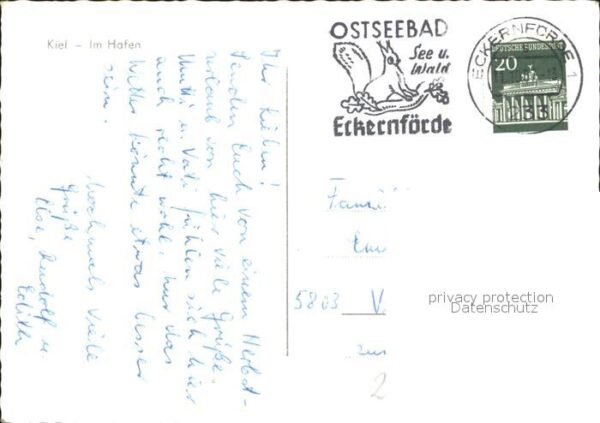 Kiel – Im Hafen
OSTSEEBAD
See u.
Wald
Eckernförde
ECKERNFÖRDE 1
233
DEUTSCHE BUNDESPOST
20
Ihr Lieben!
Senden Euch von einem Herbst-
urlaub von hier viele Grüße.
Mutti u. Vati fühlen sich hier
auch recht wohl, nur das
Wetter könnte etwas besser
sein.
Nochmals viele
Grüße
Ilse, Rudolf u
Edith
Fami
5803 V
zur
2
privacy protection
Datenschutz